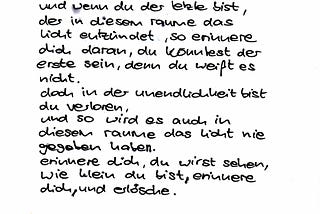 und wenn du der letzte bist,
der in diesem raume das
licht entzündet, so erinnere
dich daran, du könntest der
erste sein, denn du weißt es
nicht.
doch in der unendlichkeit bist
du verloren,
und so wird es auch in
diesem raume das licht nie
gegeben haben.
erinnere dich, du wirst sehen,
wie klein du bist, erinnere
dich, und erlösche.